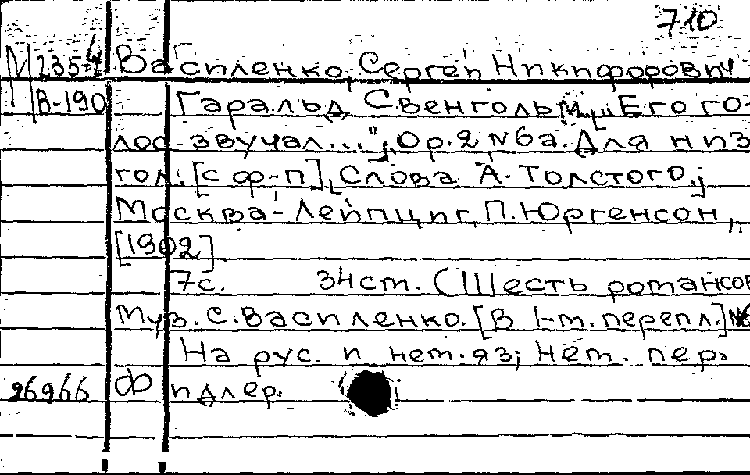 710
М 235-4 Василенко, Сергей Никифорович
В-190 Гаральд Свенгольм „Его го-
лос звучал...", Ор.2 №6а. Для низ.
гол. [с ф-п], Слова А. Толстого,;
Москва - Лейпциг, П. Юргенсон,
[1902].
7с. 34cm. (Шесть романсов
Муз. С. Василенко. [В 1-т. перепл.] №6
На рус. и нем. яз; Нем. пер.
26966 Фидлер.